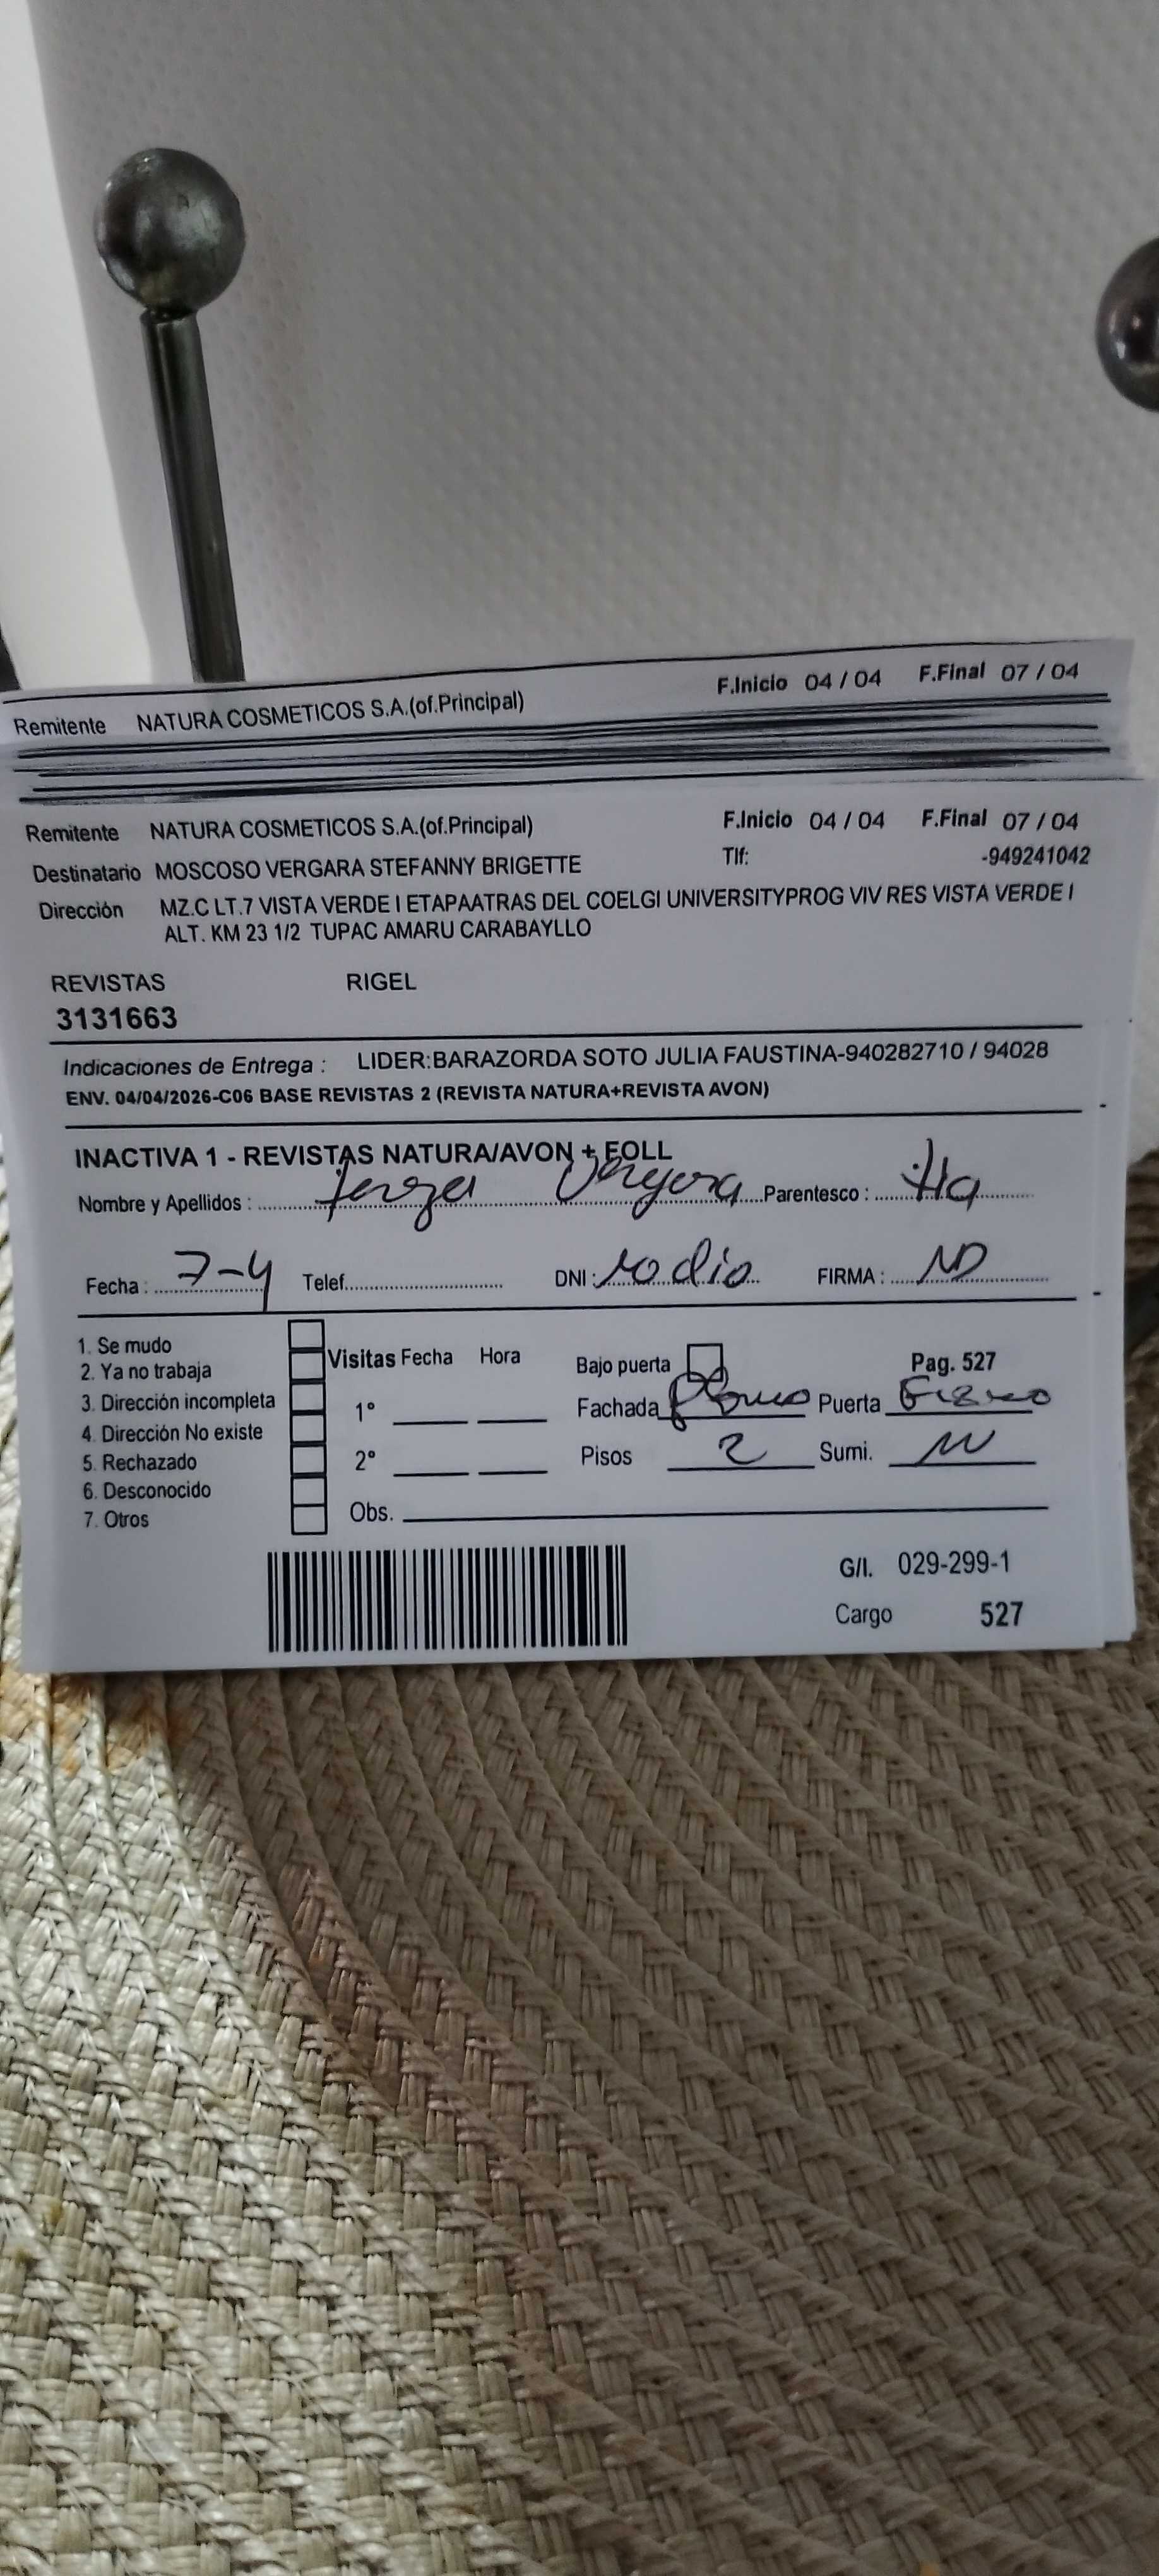 Remitente NATURA COSMETICOS S.A.(of.Principal) F.Inicio 04 / 04 F.Final 07 / 04
Remitente NATURA COSMETICOS S.A.(of.Principal) F.Inicio 04 / 04 F.Final 07 / 04
Destinatario MOSCOSO VERGARA STEFANNY BRIGETTE Tlf: -949241042
Dirección MZ.C LT.7 VISTA VERDE I ETAPAATRAS DEL COELGI UNIVERSITYPROG VIV RES VISTA VERDE I
ALT. KM 23 1/2 TUPAC AMARU CARABAYLLO
REVISTAS RIGEL
3131663
Indicaciones de Entrega : LIDER:BARAZORDA SOTO JULIA FAUSTINA-940282710 / 94028
ENV. 04/04/2026-C06 BASE REVISTAS 2 (REVISTA NATURA+REVISTA AVON)
INACTIVA 1 - REVISTAS NATURA/AVON + FOLL
Nombre y Apellidos : Vergara Parentesco : tia
Fecha : 7-4 Telef. DNI : no dio FIRMA :
1. Se mudo
2. Ya no trabaja
3. Dirección incompleta
4. Dirección No existe
5. Rechazado
6. Desconocido
7. Otros
Visitas Fecha Hora
1°
2°
Obs.
Bajo puerta Pag. 527
Fachada Puerta
Pisos 2 Sumi.
G/I. 029-299-1
Cargo 527